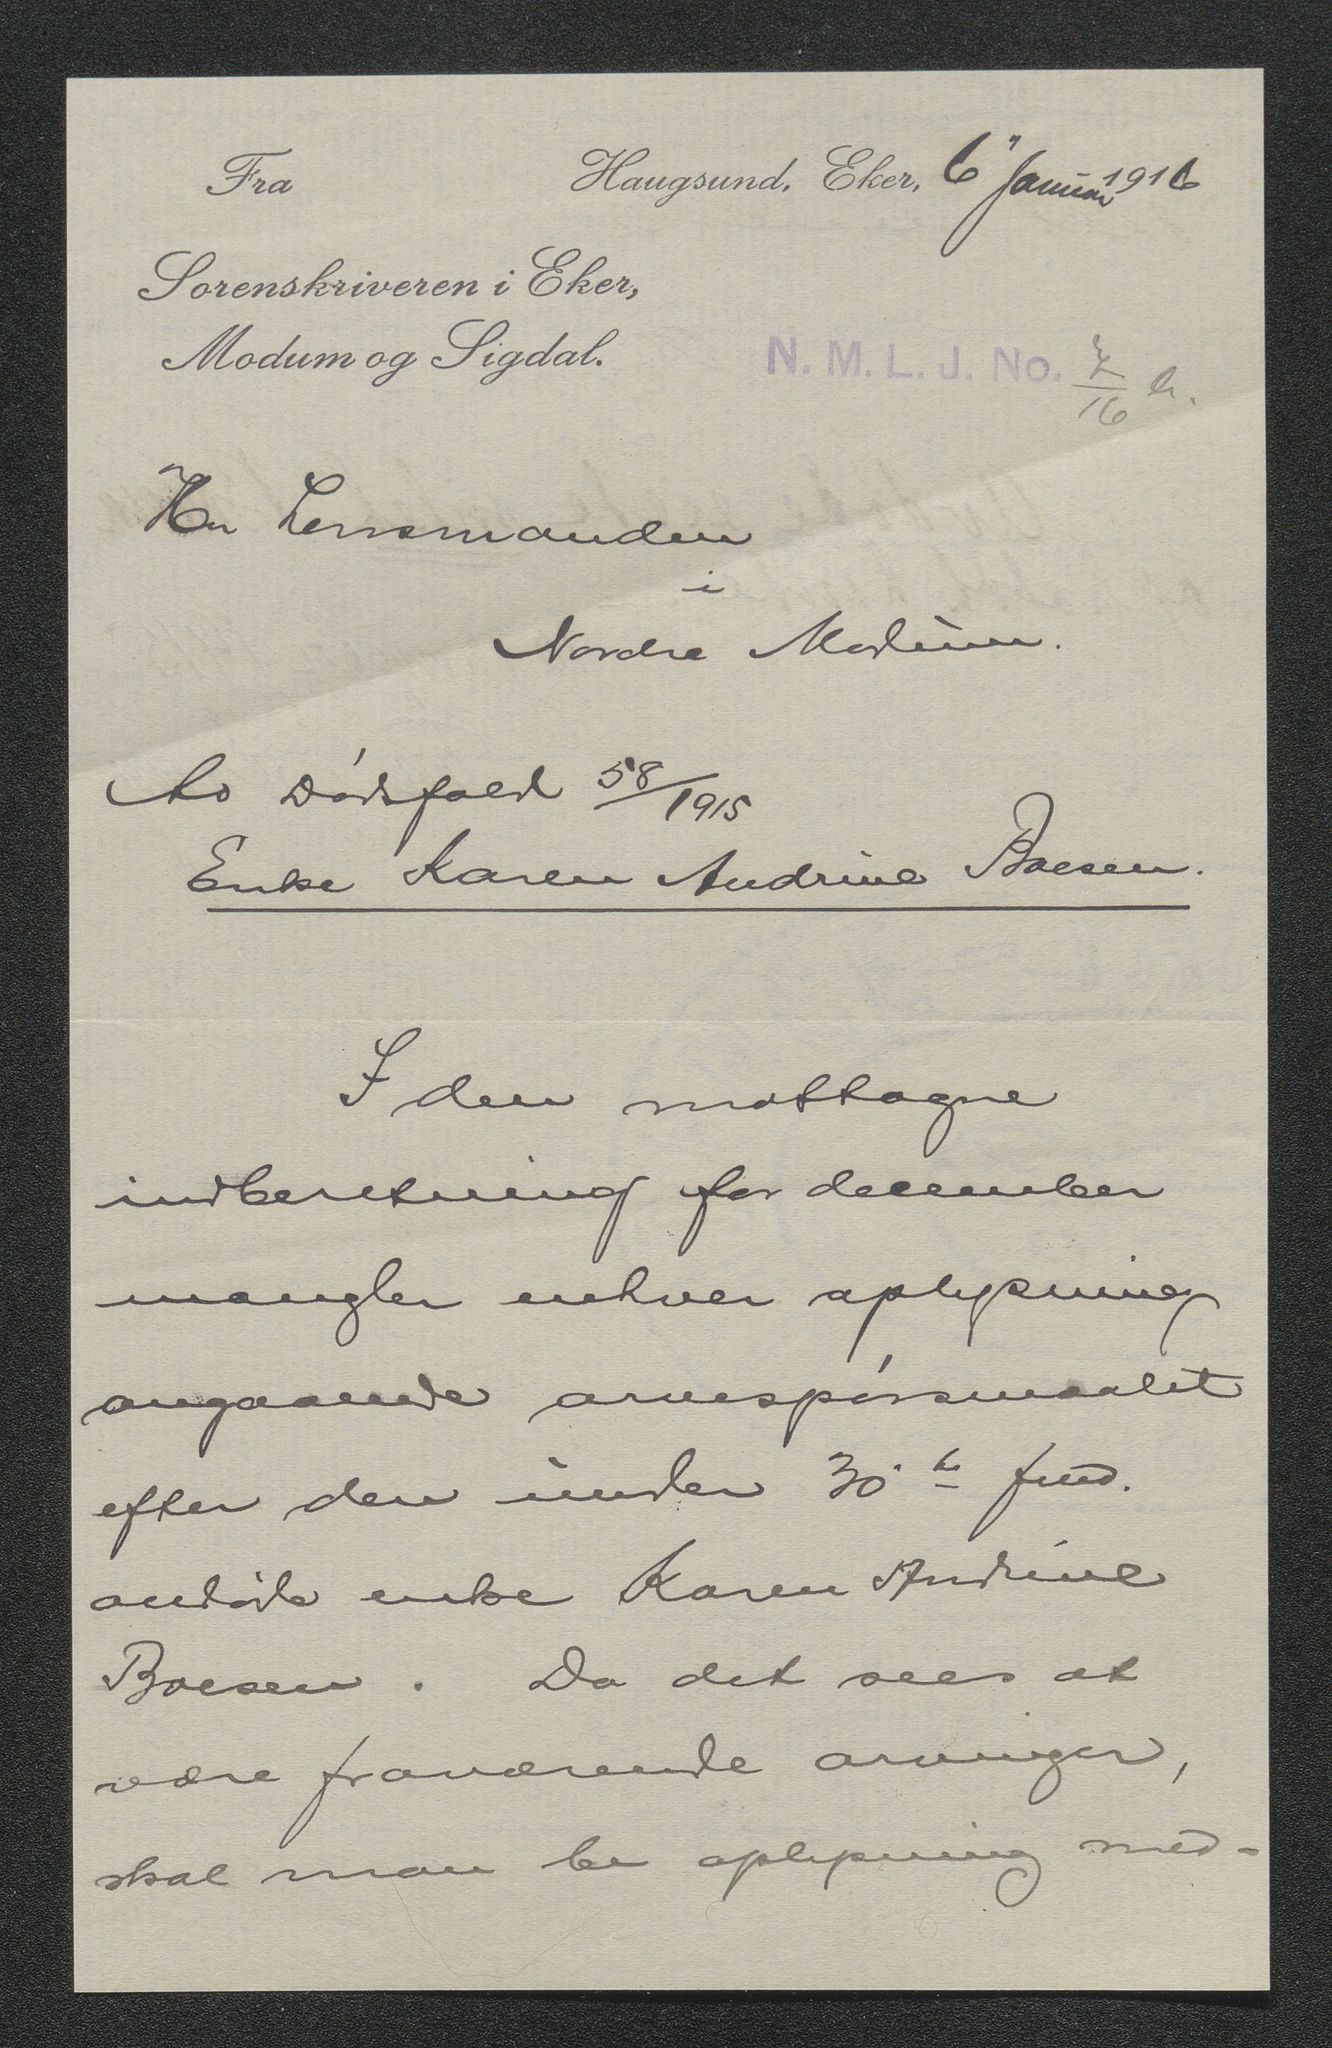 Fra
Haugsund, Eker, 6" Januar 1916
Sorenskriveren i Eker,
Modum og Sigdal.
N. M. L. J. No. 7/16
Hr Lensmanden
i
Nordre Modum.
Dødsfald 58/1915
Enke Karen Andrine Boesen.
I den mottagne
indberetning for december
mangler enhver oplysning
angaaende arvespørsmaalet
efter den under 30te
avdøde enke Karen Andrine
Boesen. Da det sees at
være fraværende arvinger,
skal man be oplysning med-